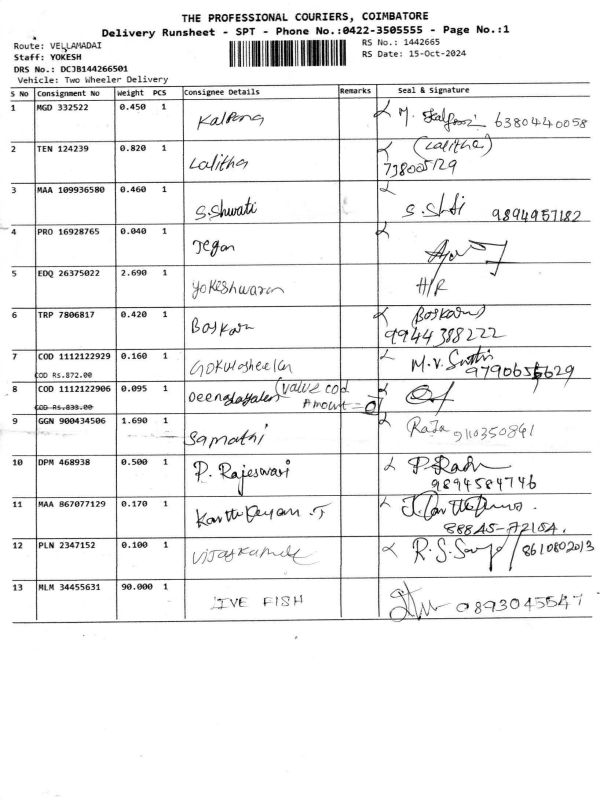 THE PROFESSIONAL COURIERS, COIMBATORE
Delivery Runsheet - SPT - Phone No.:0422-3505555 - Page No.:1
Route: VELLAMADAI
RS No.: 1442665
Staff: YOKESH
RS Date: 15-Oct-2024
DRS No.: DCJB144266501
Vehicle: Two Wheeler Delivery
S No Consignment No Weight PCS Consignee Details Remarks Seal & Signature
1 MGD 332522 0.450 1 Kalpana M. 6380440058
2 TEN 124239 0.820 1 Lalitha (Lalitha)
738005129
3 MAA 109936580 0.460 1 S.Shwati 9894957182
4 PRO 16928765 0.040 1 Jegan
5 EDQ 26375022 2.690 1 Yokeshwaran H/R
6 TRP 7806817 0.420 1 Baskaran
9944388222
7 COD 1112122929 0.160 1 M.V.
COD RS.872.00
8 COD 1112122906 0.095 1 (value cod
COD RS.833.00 Amount = 0)
9 GGN 900434506 1.690 1 Samathi Raja 9110350841
10 DPM 468938 0.500 1 P. Rajeswari P.
9894584746
11 MAA 867077129 0.170 1 Karthikeyan .T
88845-72154.
12 PLN 2347152 0.100 1 Vijaykumar R.S. 8610802013
13 MLM 34455631 90.000 1 LIVE FISH 0893045547